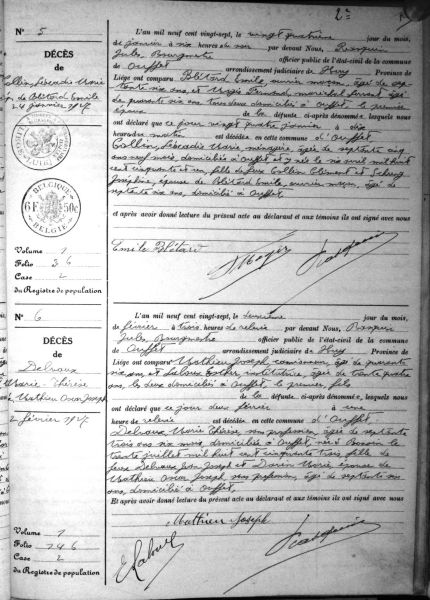 2-
N° 5
DÉCÈS
de
Collin Léocadie Marie
ép. de Blétard Emile
24 janvier 1927
BELGIQUE
6 F 50 c
BELGIE
Volume 1
Folio 36
Case 2
du Registre de population
L'an mil neuf cent vingt-sept, le vingt quatrième jour du mois,
de janvier à six heures du soir par devant Nous, Rosquin
Jules Bourgmestre officier public de l'état-civil de la commune
de Ouffet arrondissement judiciaire de Huy Province de
Liége ont comparu Blétard Emile, ouvrier maçon, âgé de sep-
tante six ans et Fernand, maréchal ferrant, âgé
de quarante six ans, tous deux domiciliés à Ouffet, le premier
époux de la défunte ci-après dénommée, lesquels
nous ont déclaré que ce jour vingt quatre janvier à dix
heures du matin est décédée en cette commune d' Ouffet
Collin, Léocadie Marie, ménagère, âgée de septante cinq
ans neuf mois, domiciliée à Ouffet et y née le six avril mil huit
cent cinquante et un, fille de feux Collin Clément et
Joséphine, épouse de Blétard Emile ouvrier maçon, âgé de
septante six ans, domicilié à Ouffet.
et après avoir donné lecture du présent acte au déclarant et aux témoins ils ont signé avec nous
Emile Blétard
N° 6
DÉCÈS
de
Delvaux
Marie-Thérèse
ép. Mathieu Oscar Joseph
2 février 1927
Volume 1
Folio 146
Case 2
du Registre de population
L'an mil neuf cent vingt-sept, le deuxième jour du mois,
de février à trois heures de relevée par devant Nous, Rosquin
Jules Bourgmestre officier public de l'état-civil de la commune
de Ouffet arrondissement judiciaire de Huy Province de
Liége ont comparu Mathieu Joseph, âgé de quarante
six ans et Esther institutrice, âgée de trente quatre
ans, les deux domiciliés à Ouffet, le premier fils
de la défunte ci-après dénommée, lesquels
nous ont déclaré que ce jour deux février à une
heure de relevée est décédée en cette commune d' Ouffet
Delvaux Marie Thérèse, sans profession, âgée de septante
trois ans six mois, domiciliée à Ouffet, née à le
trente juillet mil huit cent cinquante trois, fille de
feux Delvaux Jean Joseph et Marie, épouse de
Mathieu Oscar Joseph, sans profession, âgé de septante six
ans, domicilié à Ouffet.
Et après avoir donné lecture du présent acte au déclarant et aux témoins ils ont signé avec nous
Mathieu Joseph